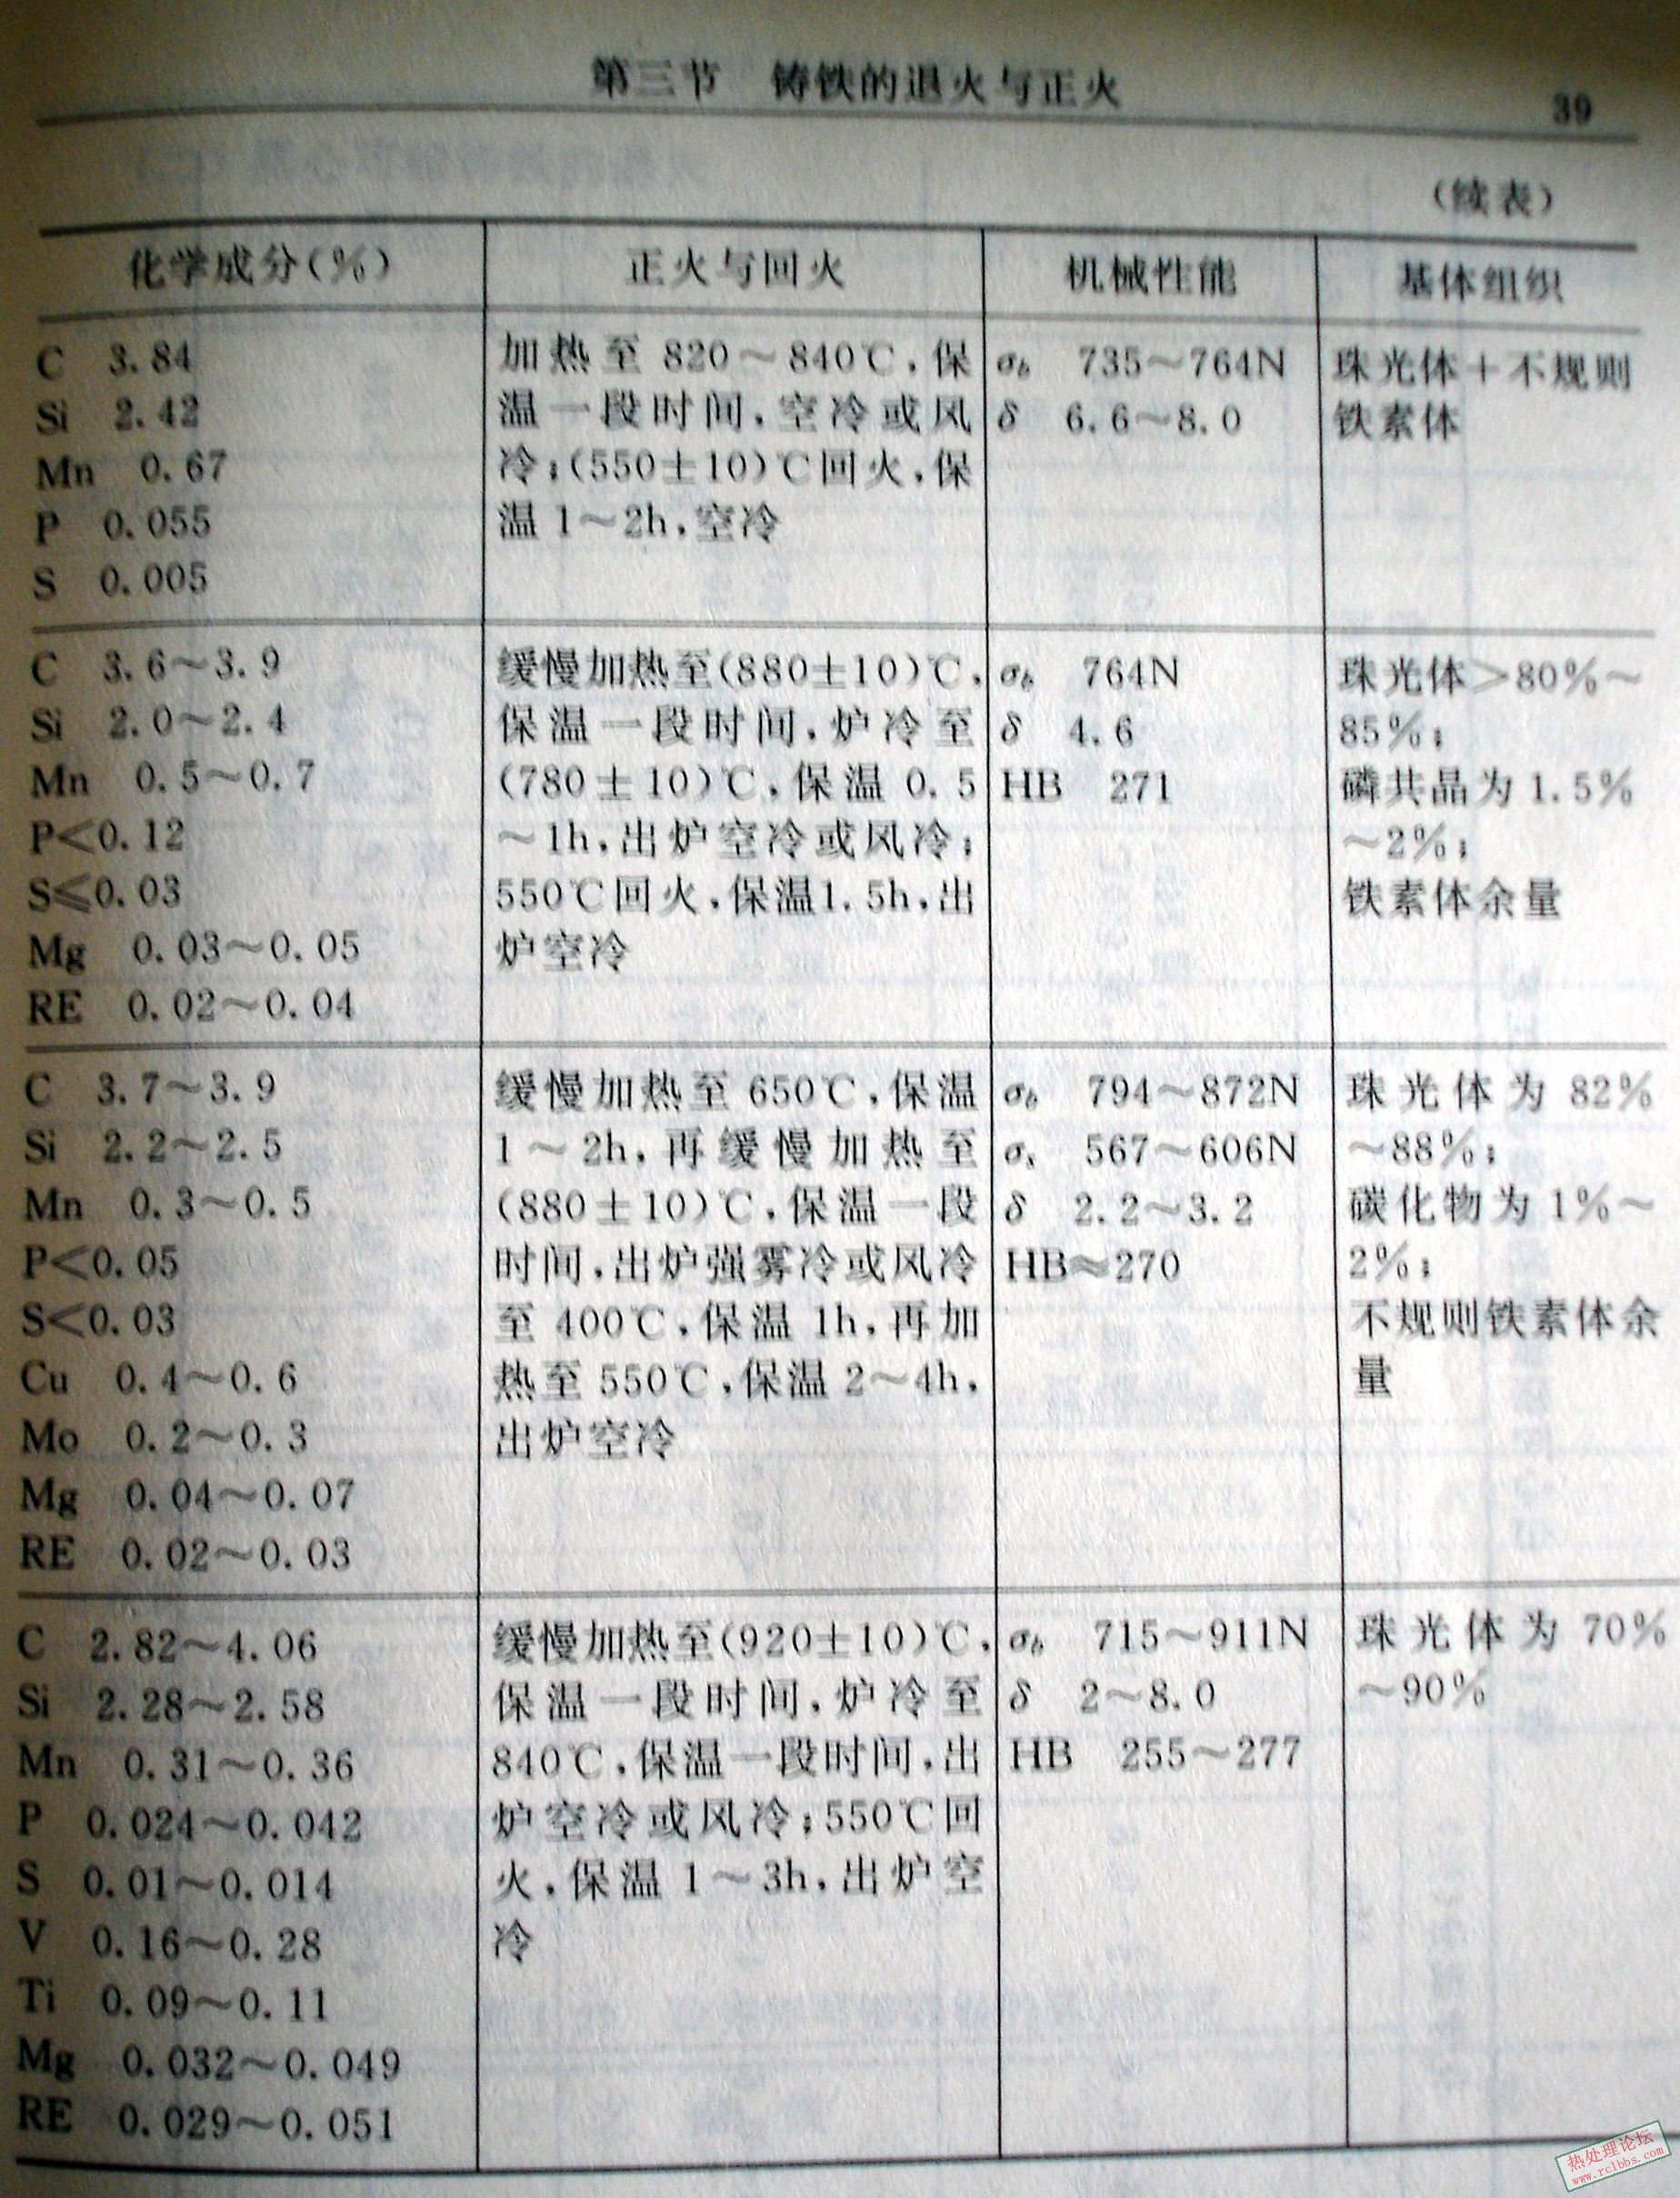 第三节 铸铁的退火与正火
39
(续表)
化学成分(%)
正火与回火
机械性能
基体组织
C 3.84
Si 2.42
Mn 0.67
P 0.055
S 0.005
加热至 820～840℃,保
温一段时间,空冷或风
冷;(550±10)℃回火,保
温 1～2h,空冷
σb 735～764N
δ 6.6～8.0
珠光体+不规则
铁素体
C 3.6～3.9
Si 2.0～2.4
Mn 0.5～0.7
P<0.12
S≤0.03
Mg 0.03～0.05
RE 0.02～0.04
缓慢加热至(880±10)℃,
保温一段时间,炉冷至
(780±10)℃,保温 0.5
～1h,出炉空冷或风冷;
550℃回火,保温1.5h,出
炉空冷
σb 764N
δ 4.6
HB 271
珠光体>80%～
85%;
磷共晶为 1.5%
～2%;
铁素体余量
C 3.7～3.9
Si 2.2～2.5
Mn 0.3～0.5
P<0.05
S<0.03
Cu 0.4～0.6
Mo 0.2～0.3
Mg 0.04～0.07
RE 0.02～0.03
缓慢加热至 650℃,保温
1～2h,再缓慢加热至
(880±10)℃,保温一段
时间,出炉强雾冷或风冷
至 400℃,保温 1h,再加
热至 550℃,保温 2～4h,
出炉空冷
σb 794～872N
σs 567～606N
δ 2.2～3.2
HB≈270
珠光体为 82%
～88%;
碳化物为 1%～
2%;
不规则铁素体余
量
C 2.82～4.06
Si 2.28～2.58
Mn 0.31～0.36
P 0.024～0.042
S 0.01～0.014
V 0.16～0.28
Ti 0.09～0.11
Mg 0.032～0.049
RE 0.029～0.051
缓慢加热至(920±10)℃,
保温一段时间,炉冷至
840℃,保温一段时间,出
炉空冷或风冷;550℃回
火,保温 1～3h,出炉空
冷
σb 715～911N
δ 2～8.0
HB 255～277
珠光体为 70%
～90%
热处理论坛
www.rclbbs.com